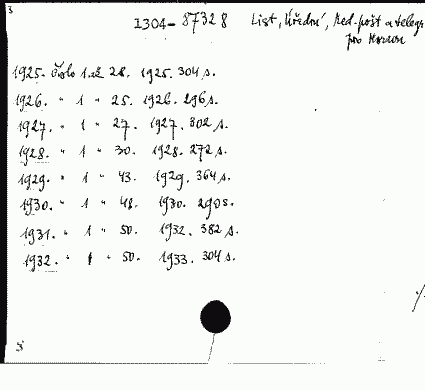 3
I304-87328 List, Úřední, Řed. pošt a telegr
pro Moravu
1925. Číslo 1 až 28. 1925. 304 s.
1926. " 1 " 25. 1926. 296 s.
1927. " 1 " 27. 1927. 302 s.
1928. " 1 " 30. 1928. 272 s.
1929. " 1 " 43. 1929. 364 s.
1930. " 1 " 48. 1930. 290 s.
1931. " 1 " 50. 1932. 382 s.
1932. " 1 " 50. 1933. 304 s.